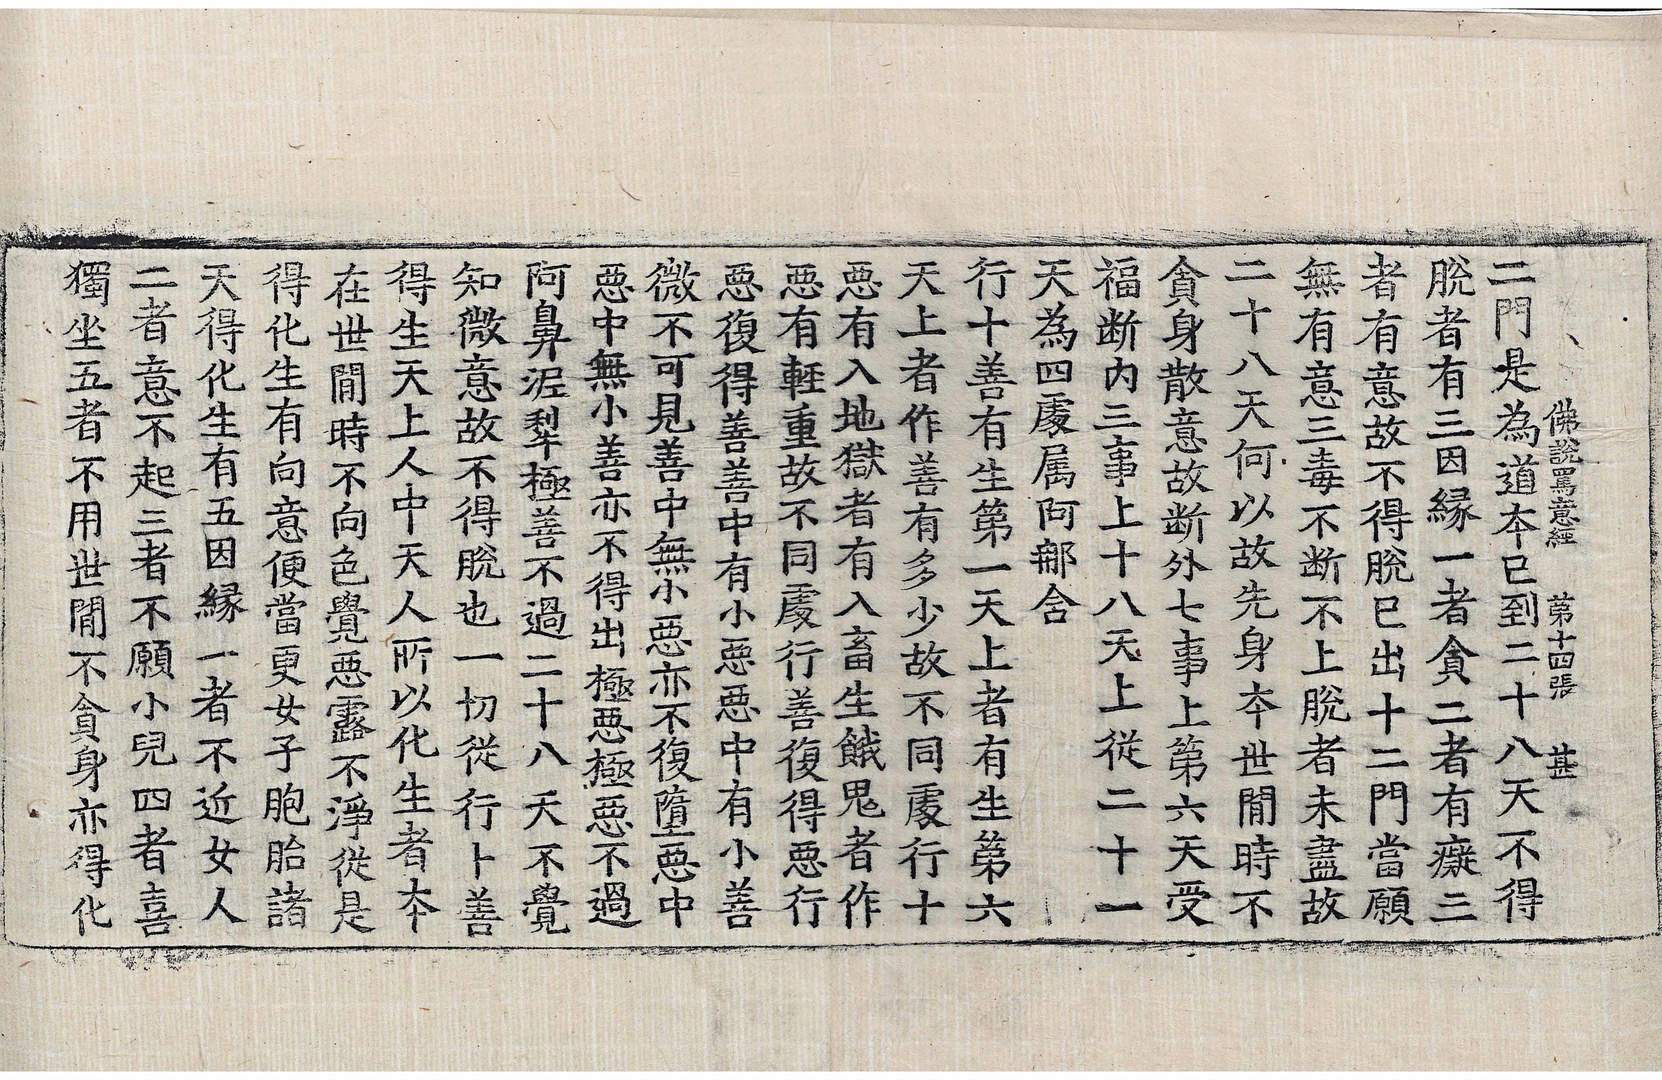 佛說罵意經　第十四張　甚
二門是為道夲已到二十八天不得
脫者有三因緣一者貪二者有癡三
者有意故不得脫已出十二門當願
無有意三毒不断不上脫者未盡故
二十八天何以故先身夲世間時不
貪身散意故断外七事上第六天受
福断内三事上十八天上從二十一
天為四處属阿鄃舍
行十善有生第一天上者有生第六
天上者作善有多少故不同處行十
惡有入地獄者有入畜生餓鬼者作
惡有輕重故不同處行善復得惡行
惡復得善善中有小惡惡中有小善
微不可見善中無小惡亦不復墮惡中
惡中無小善亦不得出極惡極惡不過
阿鼻泥犁極善不過二十八天不覺
知微意故不得脫也一切從行卜善
得生天上人中天人所以化生者夲
在世間時不向色覺惡露不淨從是
得化生有向意便當更女子胞胎諸
天得化生有五因緣一者不近女人
二者意不起三者不願小兒四者喜
獨坐五者不用世間不貪身亦得化